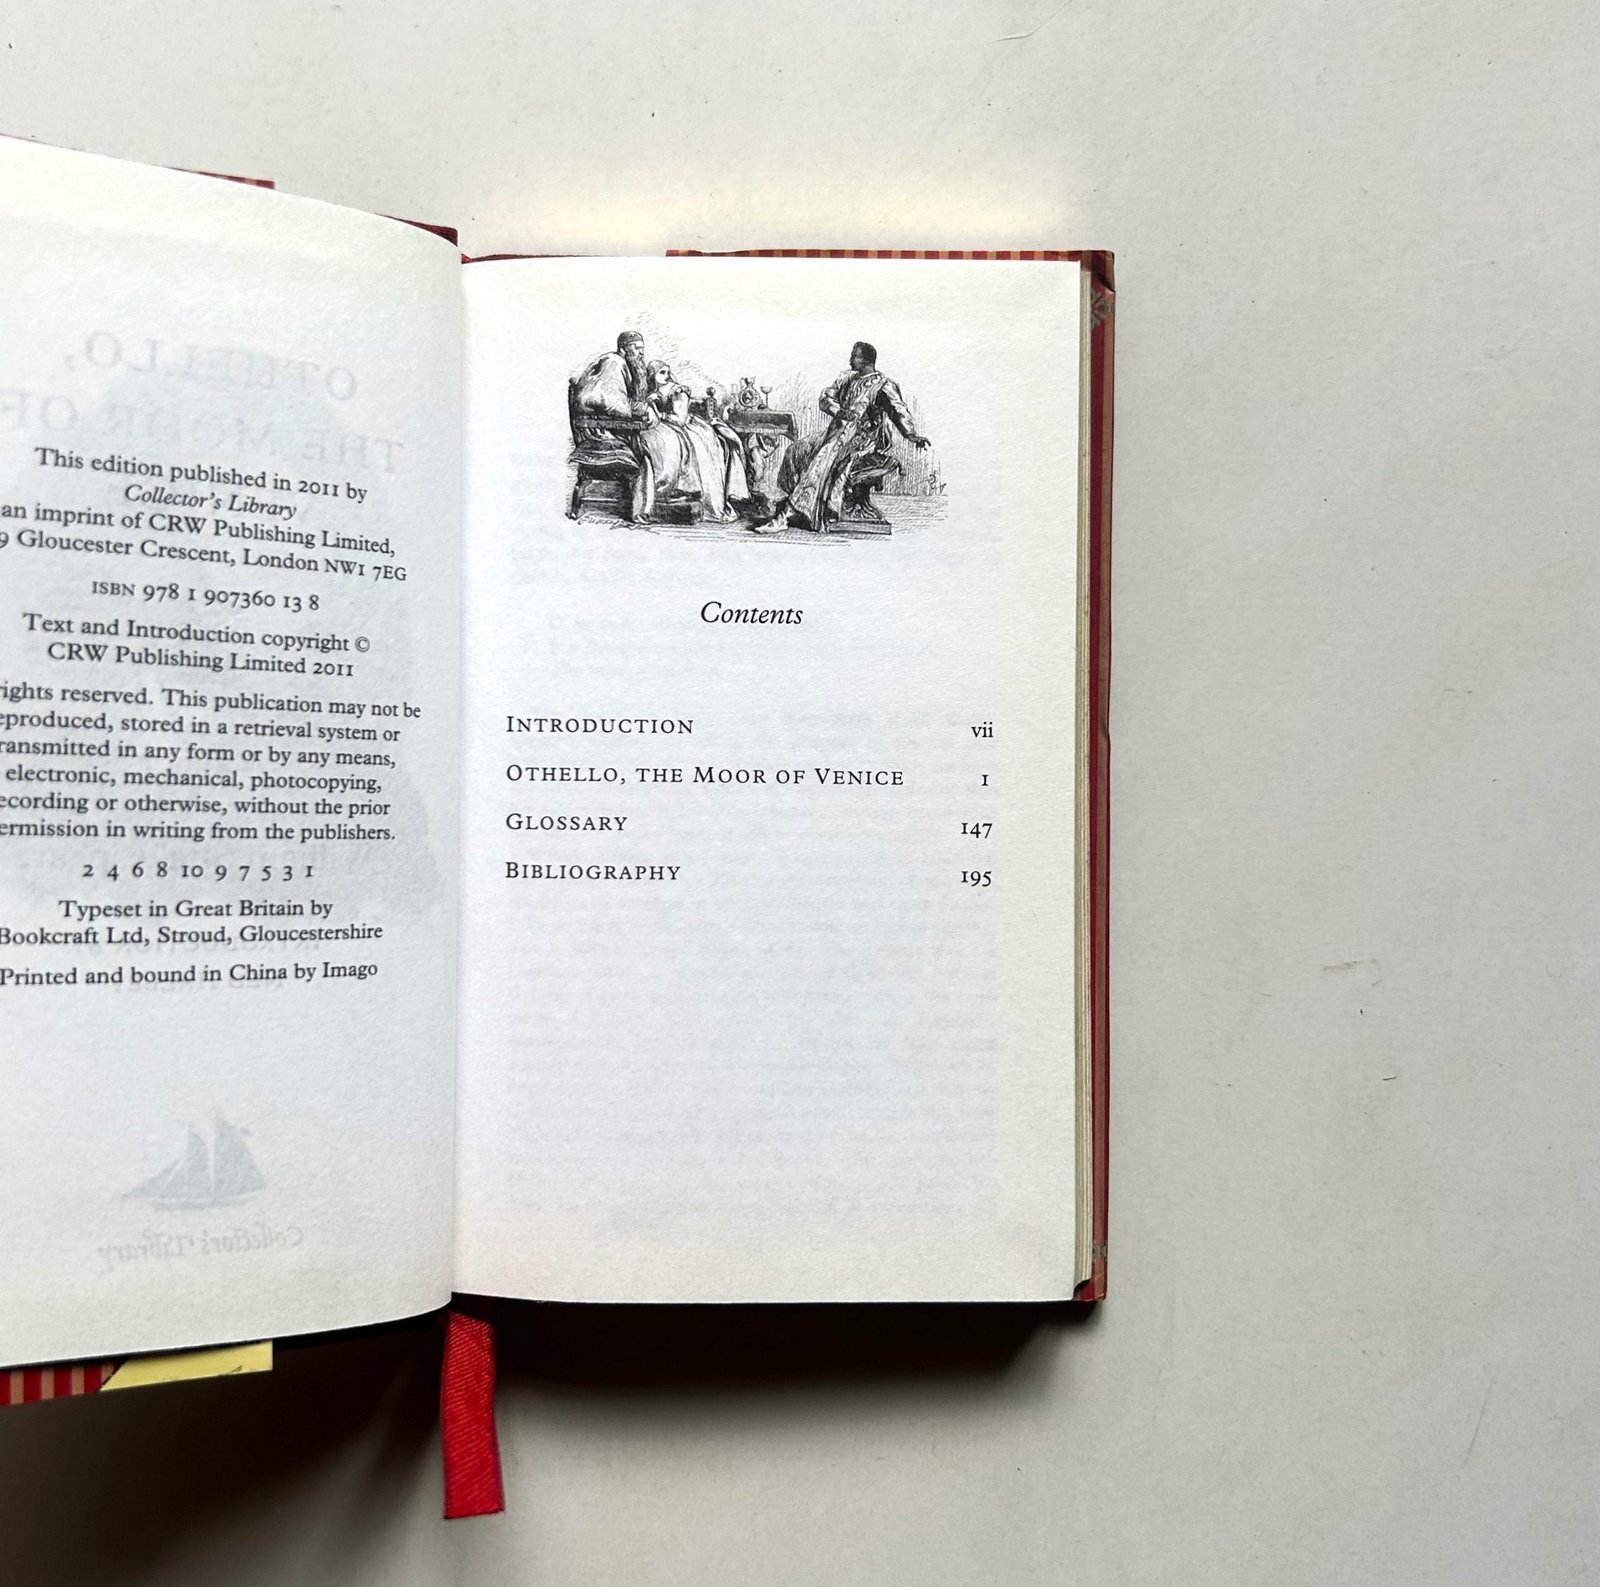 This edition published in 2011 by
Collector's Library
an imprint of CRW Publishing Limited,
9 Gloucester Crescent, London NW1 7EG
ISBN 978 1 907360 13 8
Text and Introduction copyright ©
CRW Publishing Limited 2011
rights reserved. This publication may not be
eproduced, stored in a retrieval system or
ransmitted in any form or by any means,
electronic, mechanical, photocopying,
ecording or otherwise, without the prior
ermission in writing from the publishers.
2 4 6 8 10 9 7 5 3 1
Typeset in Great Britain by
Bookcraft Ltd, Stroud, Gloucestershire
Printed and bound in China by Imago
OTHELLO,
THE MOOR OF
Collector's Library
Contents
INTRODUCTION vii
OTHELLO, THE MOOR OF VENICE 1
GLOSSARY 147
BIBLIOGRAPHY 195